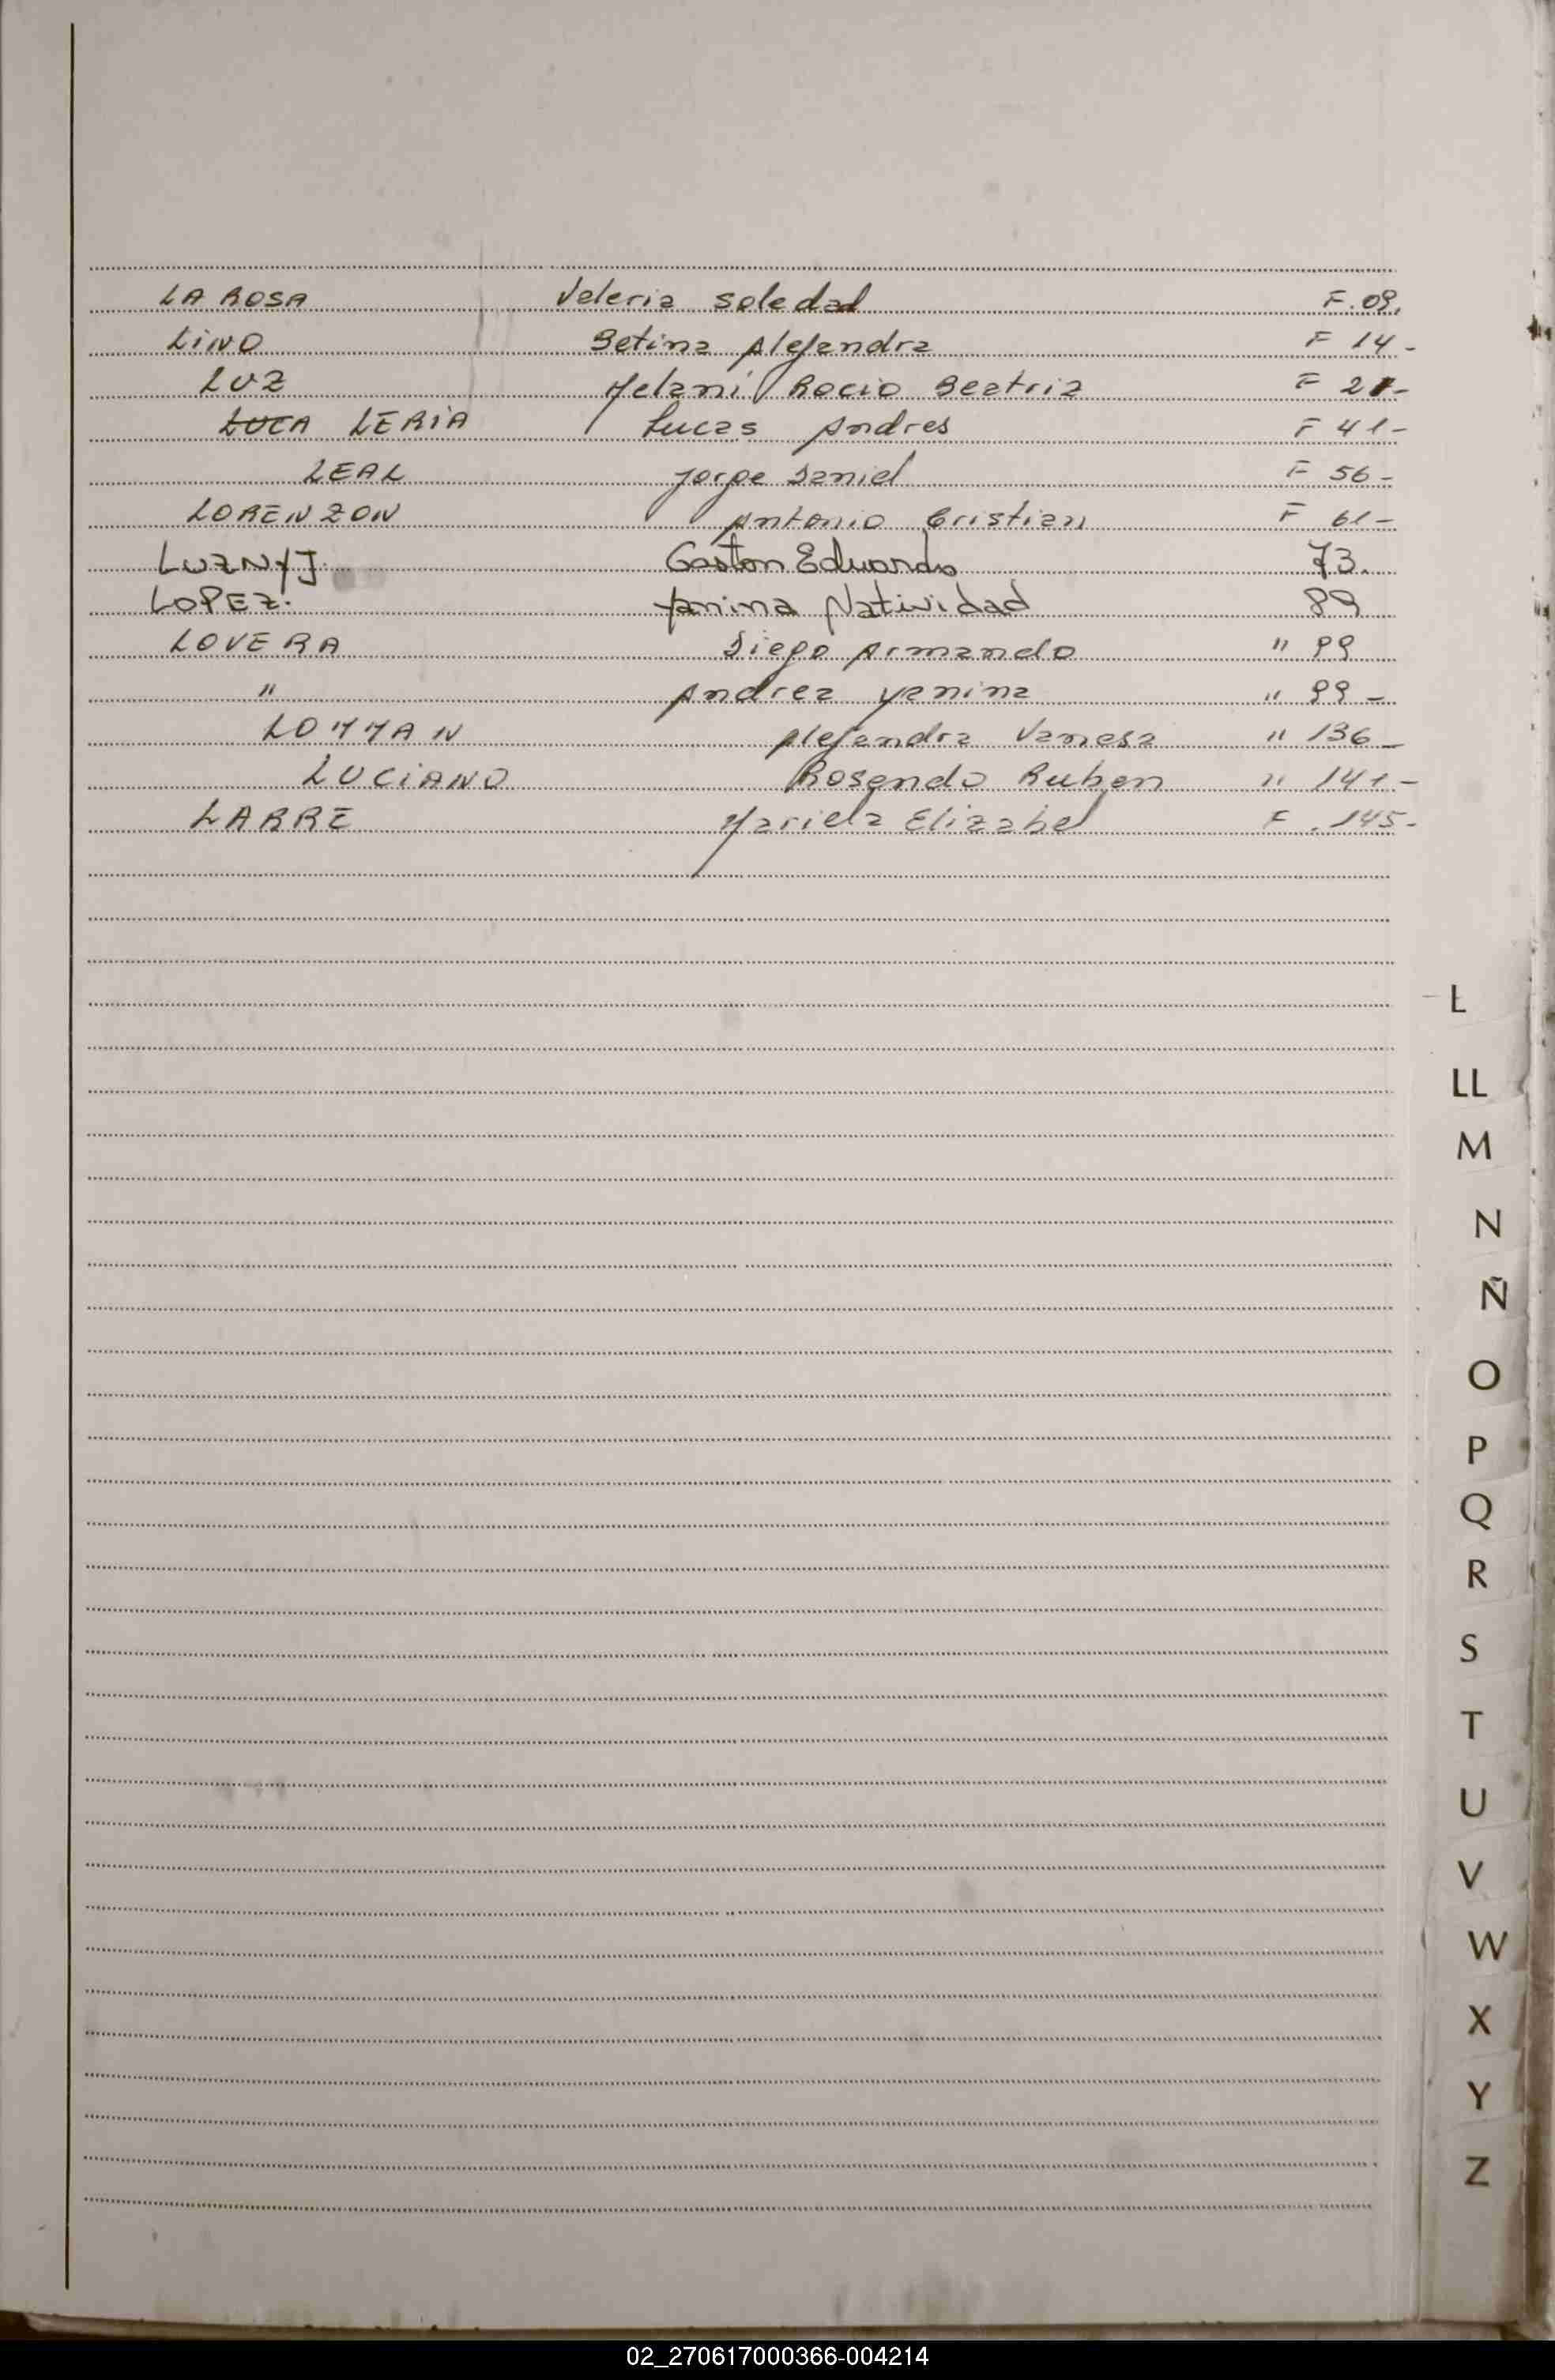 LA ROSA Valeria Soledad F. 09.
LiNO Betina Alejandra F 14 -
LUZ Melani Rocio Beatriz F 21-
LUCA LERiA Lucas Andres F 41-
LEAL Jorge Daniel F 56-
LORENZON Antonio Cristian F 61-
LUZNYJ. Gaston Eduardo 73.
LOPEZ. Yanina Natividad 89
LOVERA Diego Armando " 99
" Andrea Yanina " 99 -
LOMMAN Alejandra Vanesa " 136 -
LUCiANO Rosendo Ruben " 141 -
LARRE Mariela Elizabel F . 145 -
L
LL
M
N
Ñ
O
P
Q
R
S
T
U
V
W
X
Y
Z
02_270617000366-004214